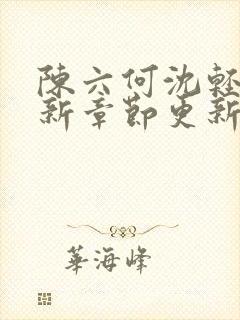 陳六何沈輕
新章節更新
華海峰